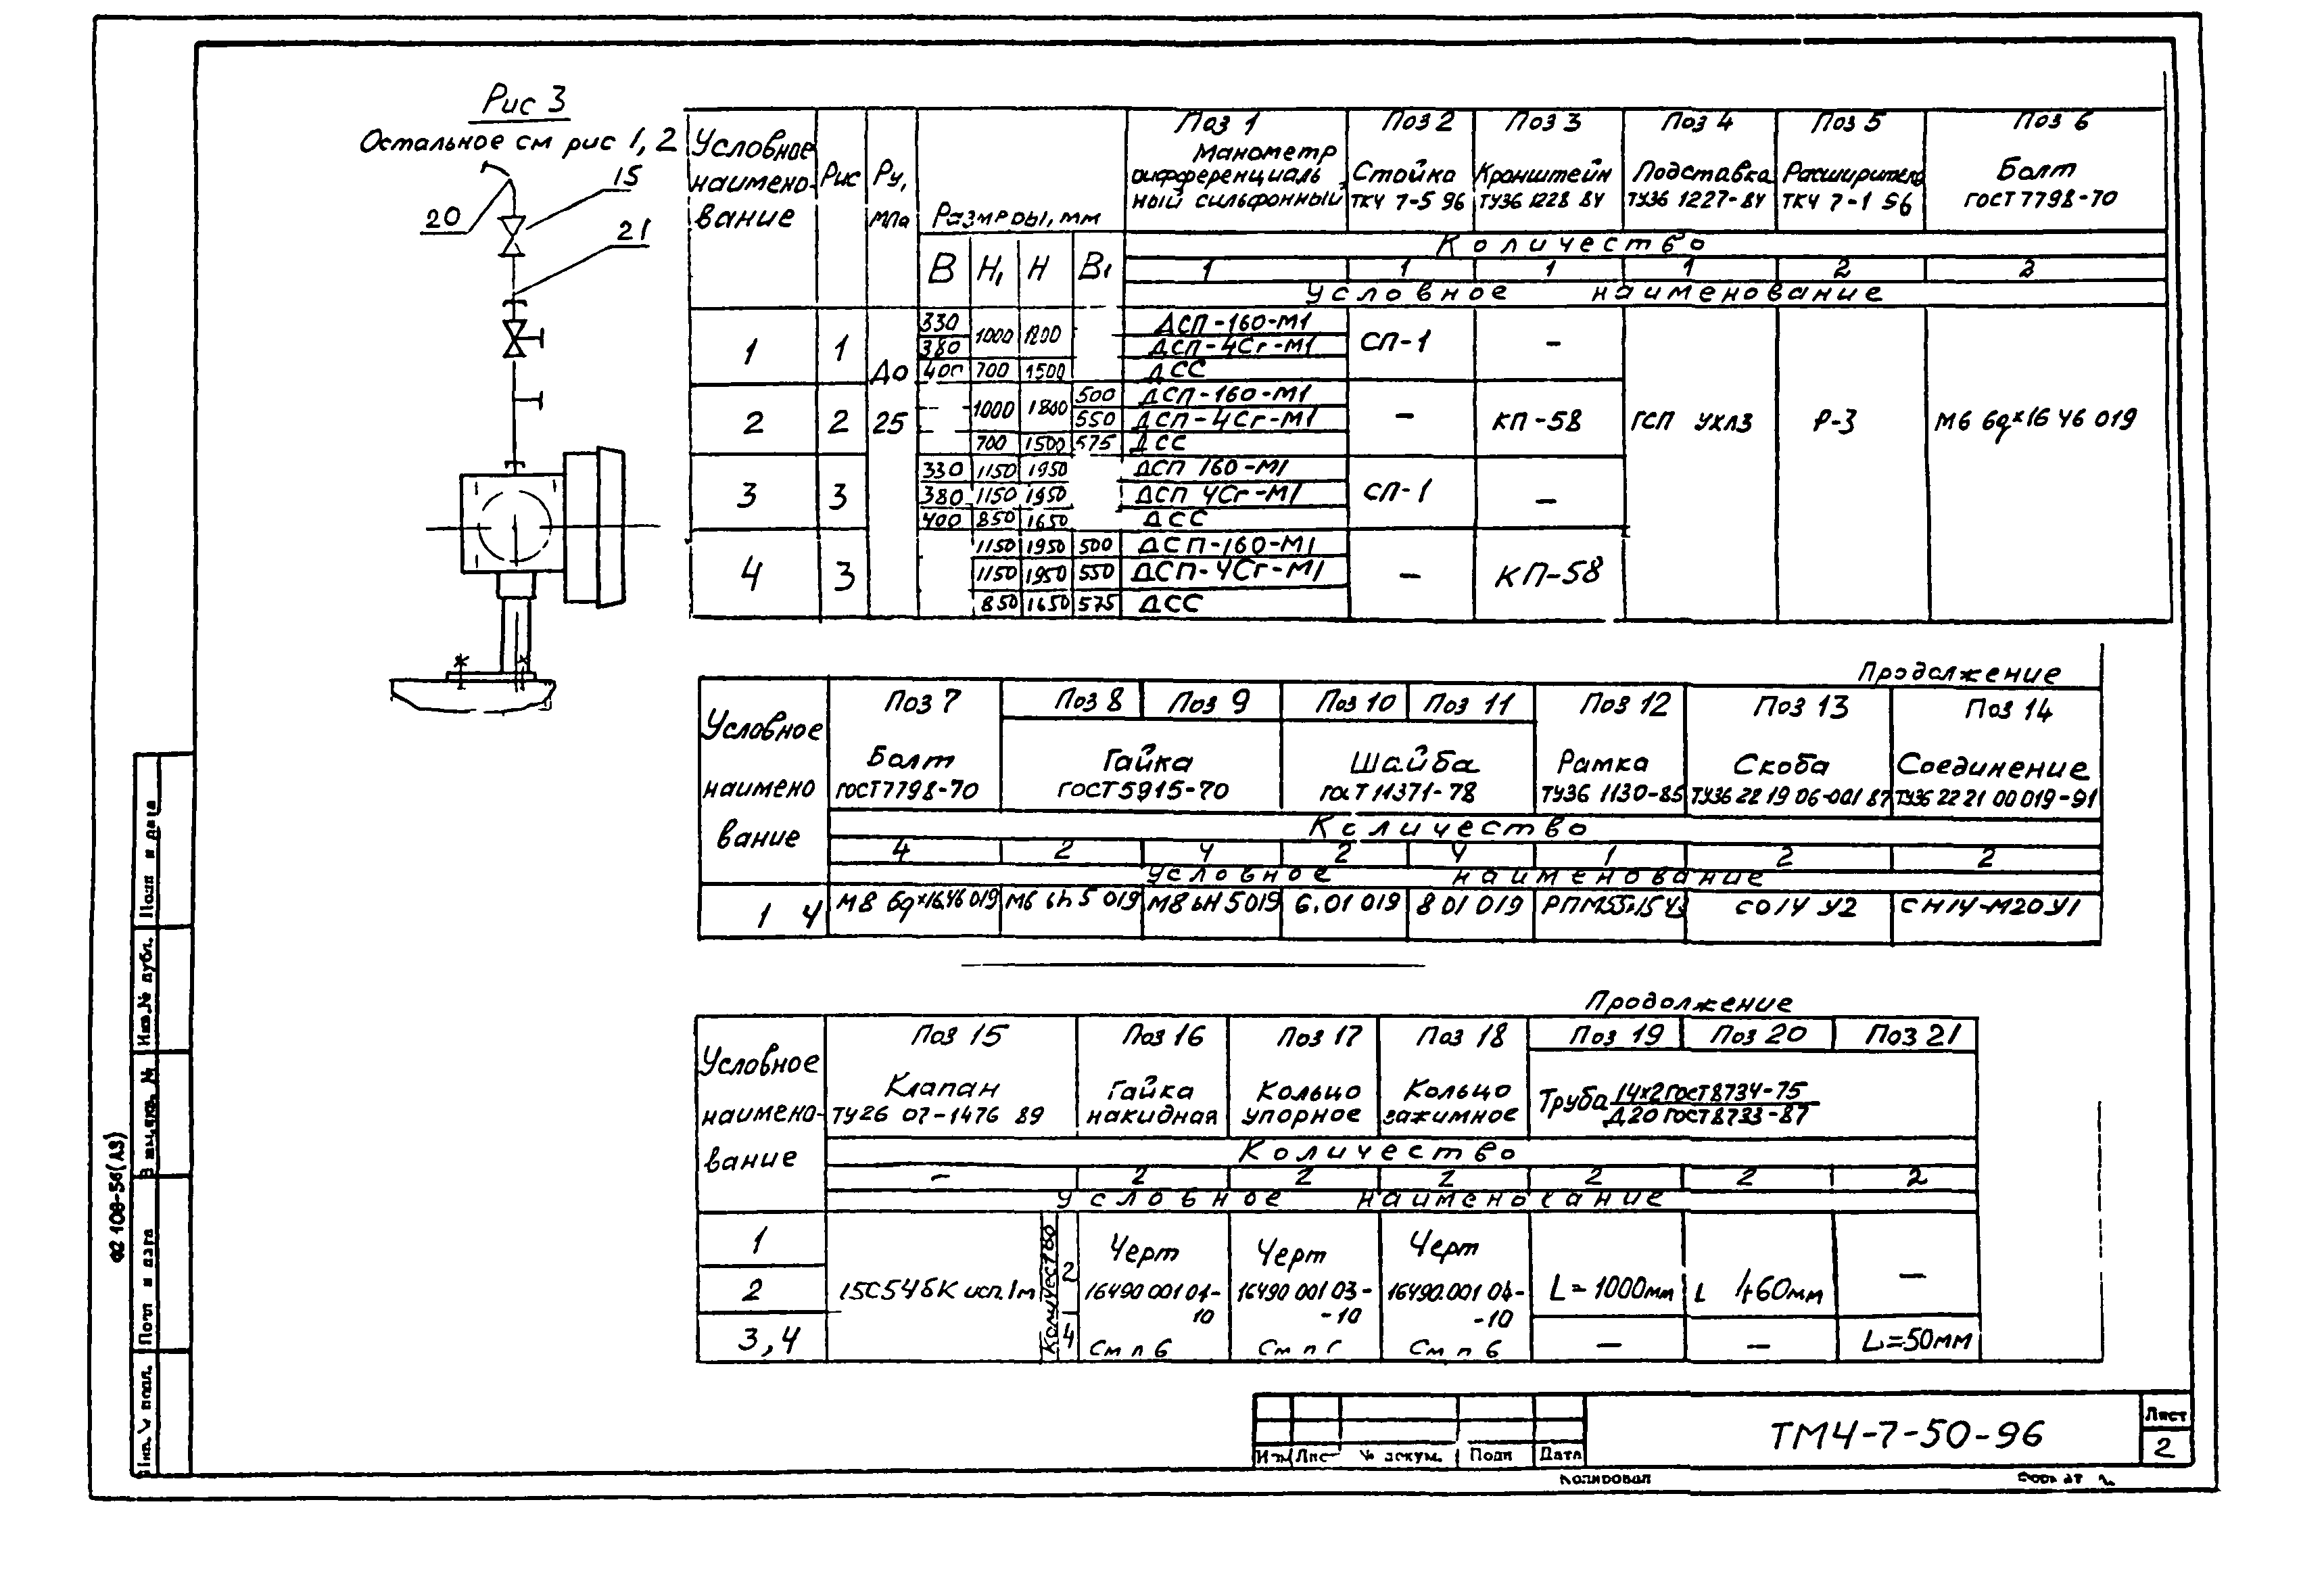 Рис 3
Остальное см рис 1, 2
15
20
21
Условное наимено-вание Рис Ру, МПа Размеры, мм
В Н₁ Н В₁
Поз 1 Поз 2 Поз 3 Поз 4 Поз 5 Поз 6
Манометр дифференциаль ный сильфонный
Стойка ТКЧ 7-5 96
Кронштейн ТУ36 1228 84
Подставка ТУ36 1227-84
Расширитель ТКЧ 7-1 96
Болт ГОСТ 7798-70
Количество
1 1 1 1 2 2
Условное наименование
1 1 До 25
330 1000 1800 ДСП-160-М1 СП-1 -
380 ДСП-4Сг-М1
400 700 1500 ДСС
2 2
- 1000 1800 500 ДСП-160-М1 - КП-58 ГСП УХЛ3 Р-3 М6 6g×16 46 019
550 ДСП-4Сг-М1
700 1500 575 ДСС
3 3
330 1150 1950 ДСП 160-М1 СП-1 -
380 1150 1950 ДСП 4Сг-М1
400 850 1650 ДСС
4 3
1150 1950 500 ДСП-160-М1 - КП-58
1150 1950 550 ДСП-4Сг-М1
850 1650 575 ДСС
Продолжение
Условное наимено вание
Поз 7 Поз 8 Поз 9 Поз 10 Поз 11 Поз 12 Поз 13 Поз 14
Болт Гайка Шайба Рамка Скоба Соединение
ГОСТ 7798-70 ГОСТ 5915-70 ГОСТ 11371-78 ТУ36 1130-85 ТУ36 22 19 06-001 87 ТУ36 22 21 00 019-91
Количество
4 2 4 2 4 1 2 2
Условное наименование
1 4 М8 6g×16.46 019 М6 6Н 5 019 М8 6Н 5 019 6.01 019 8 01 019 РПМ 55×15 СО14 У2 СН14-М20 У1
Продолжение
Условное наимено-вание
Поз 15 Поз 16 Поз 17 Поз 18 Поз 19 Поз 20 Поз 21
Клапан ТУ26 07-1476 89
Гайка накидная
Кольцо упорное
Кольцо зажимное
Труба 14×2 ГОСТ 8734-75
Д 20 ГОСТ 8733-87
Количество
- 2 2 2 2 2 2
Условное наименование
1
2
3, 4
15С54бК исп. 1м
Количество
2
4
Черт 16490 001 01-10 См п 6
Черт 16490 001 03--10 См п
Черт 16490.001 04--10 См п 6
L=1000мм L 460мм -
- - L=50мм
Ф2 108-56(А3)
Инв. № подл. Подп и дата Взам. инв. № Инв. № дубл. Подп и дата
Изм Лист № докум. Подп Дата
ТМ4-7-50-96
Лист
2
Копировал
Формат